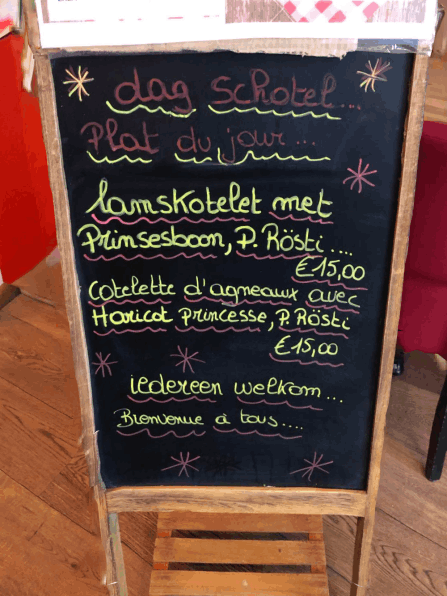 dag schotel...
Plat du jour...
lamskotelet met
Prinsesboon, P. Rösti....
€15,00
Cotelette d'agneaux avec
Haricot princesse, P. Rösti
€15,00
iedereen welkom...
Bienvenue à tous....